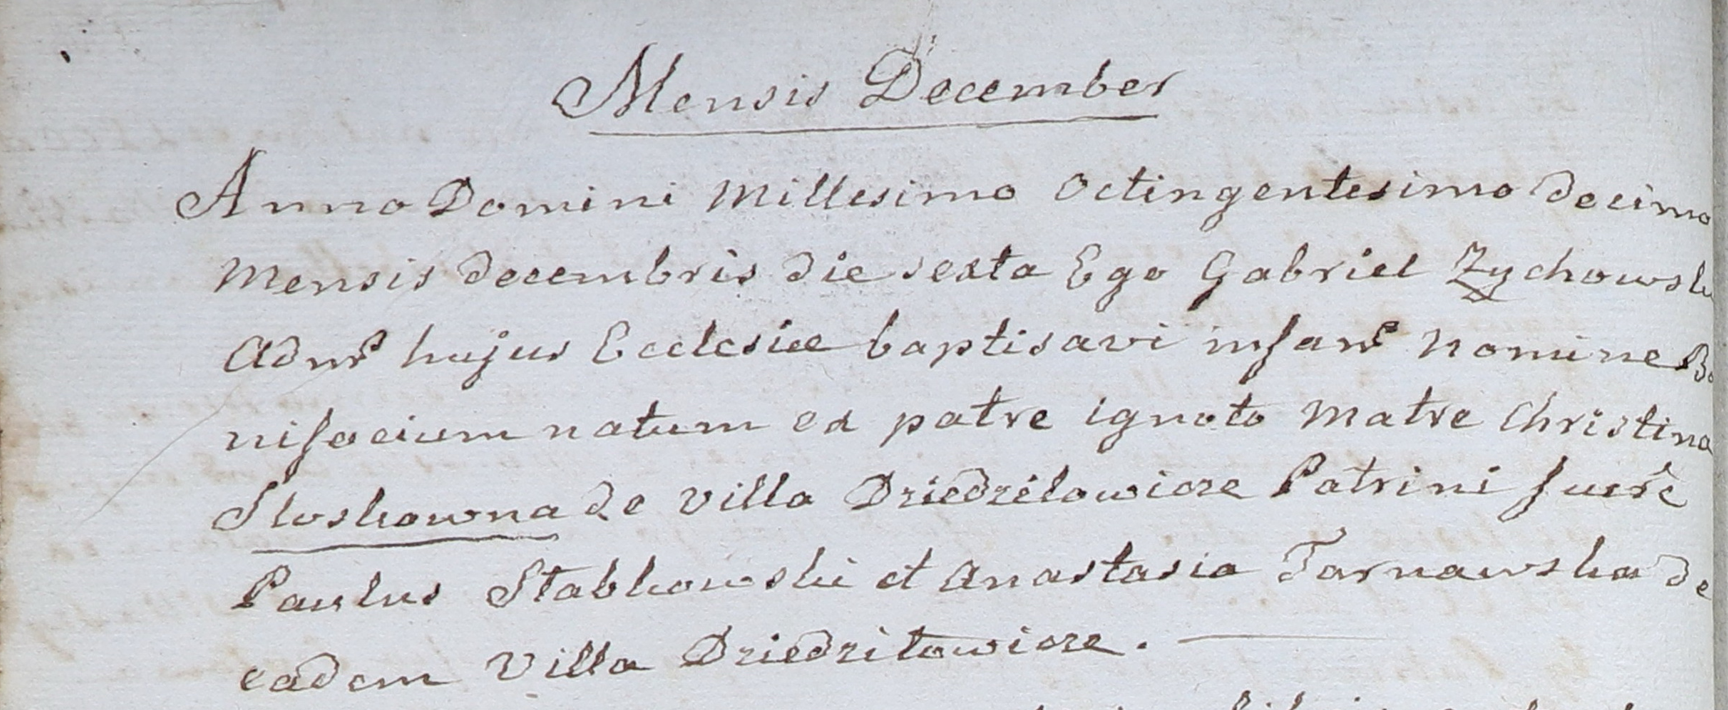 Mensis December
Anno Domini Millesimo Octingentesimo decimo
Mensis decembris die sexta Ego Gabriel Zychowski
Adnr̃ hujus Ecclesiæ baptisavi infañ nomine Bo
nifacium natum ex patre ignoto Matre Christina
Sloskowna de villa Dziedzilowicze Patrini fuer̃e
Paulus Stabkowski et Anastasia Tarnawska de
eadem Villa Dziedzilowicze.